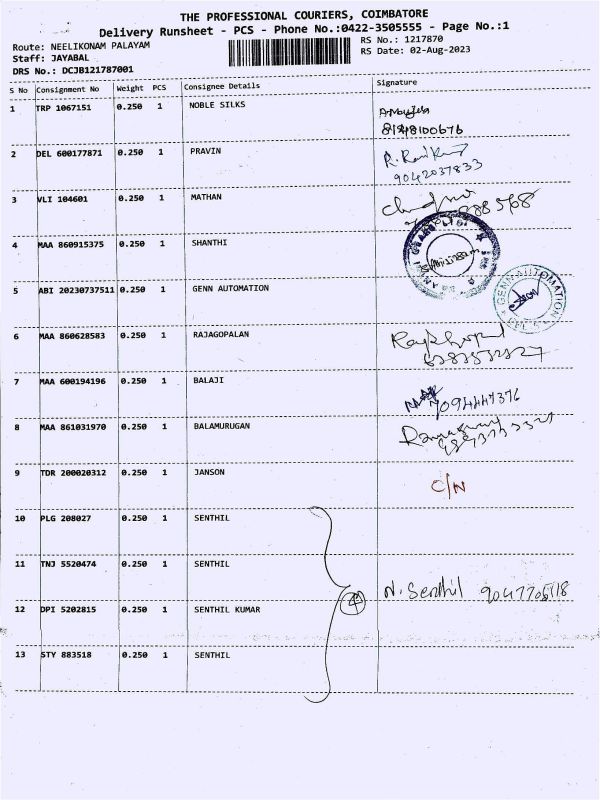 THE PROFESSIONAL COURIERS, COIMBATORE
Delivery Runsheet - PCS - Phone No.:0422-3505555 - Page No.:1
Route: NEELIKONAM PALAYAM
RS No.: 1217870
Staff: JAYABAL
RS Date: 02-Aug-2023
DRS No.: DCJB121787001
S No Consignment No Weight PCS Consignee Details Signature
1 TRP 1067151 0.250 1 NOBLE SILKS
8148100676
2 DEL 600177871 0.250 1 PRAVIN
9042037833
3 VLI 104601 0.250 1 MATHAN
4 MAA 860915375 0.250 1 SHANTHI
5 ABI 20230737511 0.250 1 GENN AUTOMATION
GENN AUTOMATION
6 MAA 860628583 0.250 1 RAJAGOPALAN
7 MAA 600194196 0.250 1 BALAJI
7094447376
8 MAA 861031970 0.250 1 BALAMURUGAN
9 TDR 200020312 0.250 1 JANSON C/N
10 PLG 208027 0.250 1 SENTHIL
11 TNJ 5520474 0.250 1 SENTHIL
N. Senthil 9047705118
4
12 DPI 5202815 0.250 1 SENTHIL KUMAR
13 STY 883518 0.250 1 SENTHIL